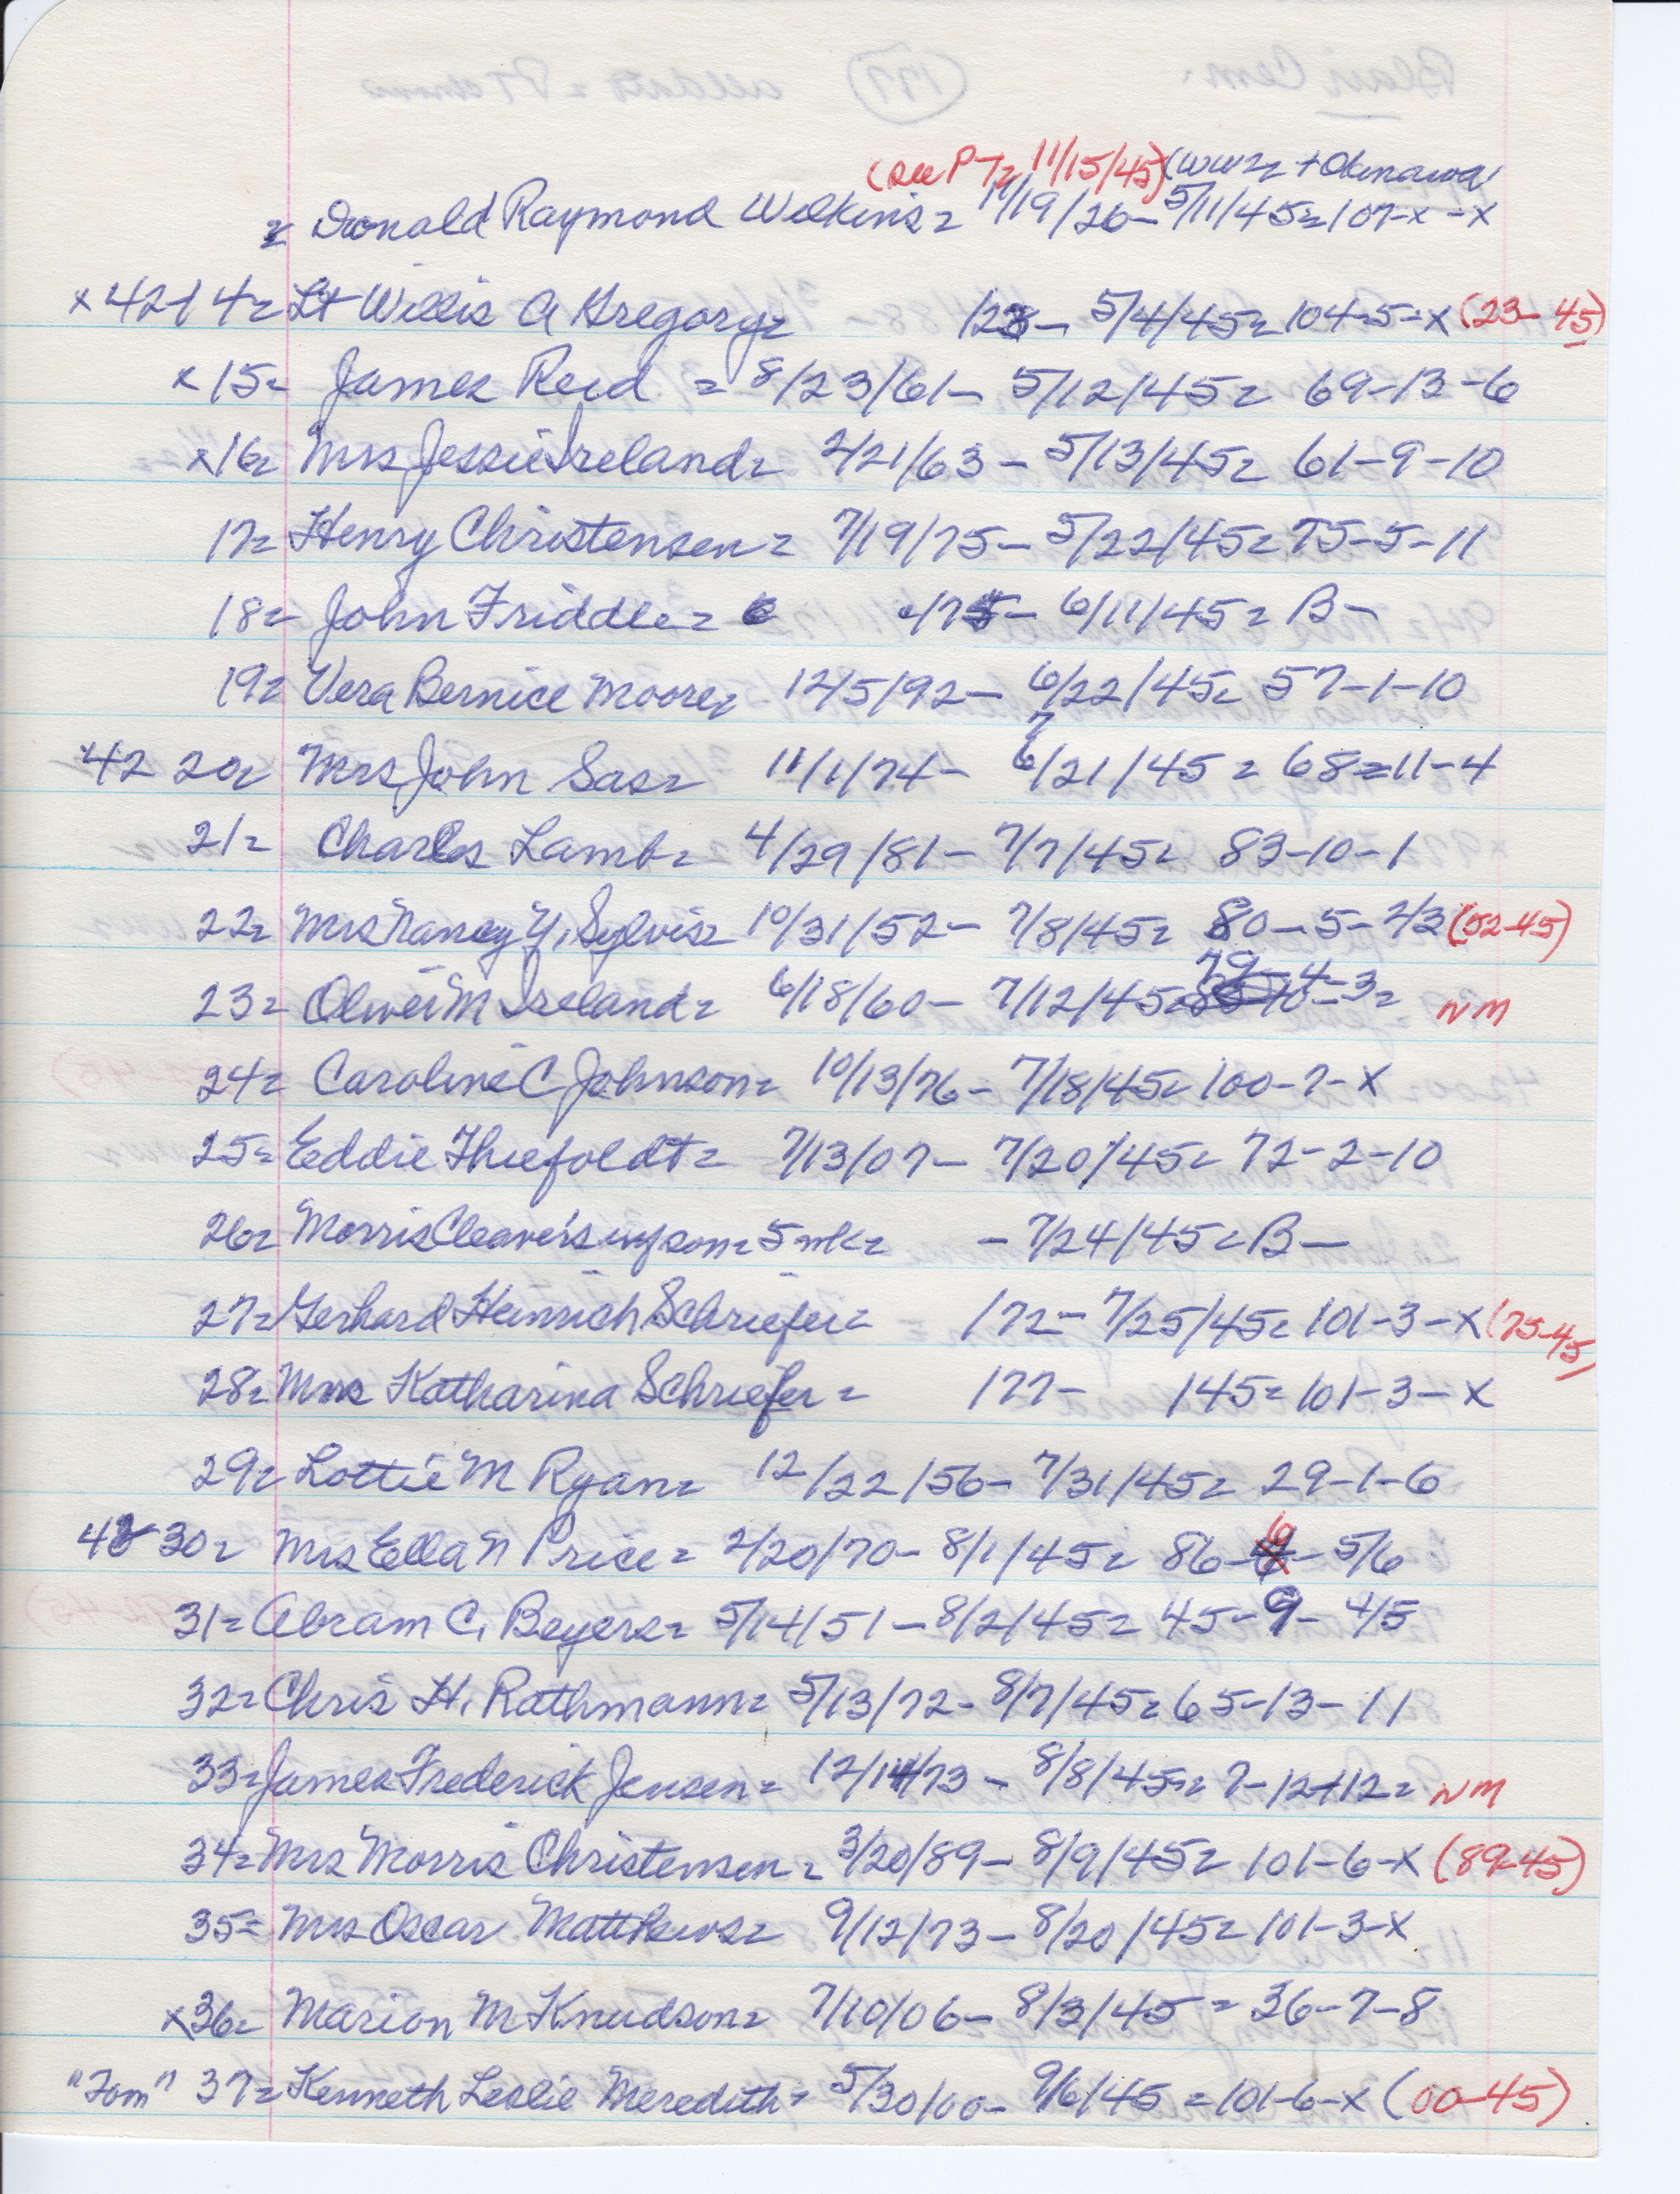 (see PT= 11/15/45) (WW2 + Okinawa
= Donald Raymond Wilkins = 11/19/26 - 5/11/45 = 107-x-x
x 4214 = Lt Willis A Gregory = /23 - 5/4/45 = 104-5-x (23-45)
x 15 = James Reid = 8/23/61 - 5/12/45 = 69-13-6
x 16 = Mrs Jessie Ireland = 2/21/63 - 5/13/45 = 61-9-10
17 = Henry Christensen = 7/19/75 - 5/22/45 = 75-5-11
18 = John Friddle = /75 - 6/11/45 = B-
19 = Vera Bernice Moore = 12/5/92 - 6/22/45 = 57-1-10
7
42 20 = Mrs John Sas = 11/1/74 - 6/21/45 = 68=11-4
21 = Charles Lamb = 4/29/81 - 7/7/45 = 83-10-1
22 = Mrs Nancy Y. Sylvis = 10/31/52 - 7/8/45 = 80-5-2/3 (52-45)
23 = Oliver M Ireland = 6/18/60 - 7/12/45 = 79-4-3 = NM
24 = Caroline C Johnson = 10/13/76 - 7/18/45 = 100-7-x
25 = Eddie Thiefoldt = 7/13/07 - 7/20/45 = 72-2-10
26 = Morris Cleaver's inf son = 5 wk = - 7/24/45 = B-
27 = Gerhard Heinrich Schriefer = /72 - 7/25/45 = 101-3-x (75-45)
28 = Mrs Katharina Schriefer = /77 - /45 = 101-3-x
29 = Lottie M Ryan = 12/22/56 - 7/31/45 = 29-1-6
42 30 = Mrs Ella N Price = 2/20/70 - 8/1/45 = 86-6-5/6
31 = Abram C. Beyers = 5/14/51 - 8/2/45 = 45-9-4/5
32 = Chris H. Rathmann = 5/13/72 - 8/7/45 = 65-13-11
33 = James Frederick Jensen = 12/14/73 - 8/8/45 = 7-12+12 = NM
34 = Mrs Morris Christensen = 3/20/89 - 8/9/45 = 101-6-x (89-45)
35 = Mrs Oscar Matthews = 9/12/73 - 8/20/45 = 101-3-x
x 36 = Marion M Knudson = 7/10/06 - 8/3/45 = 36-7-8
"Tom" 37 = Kenneth Leslie Meredith = 5/30/00 - 9/6/45 = 101-6-x (00-45)